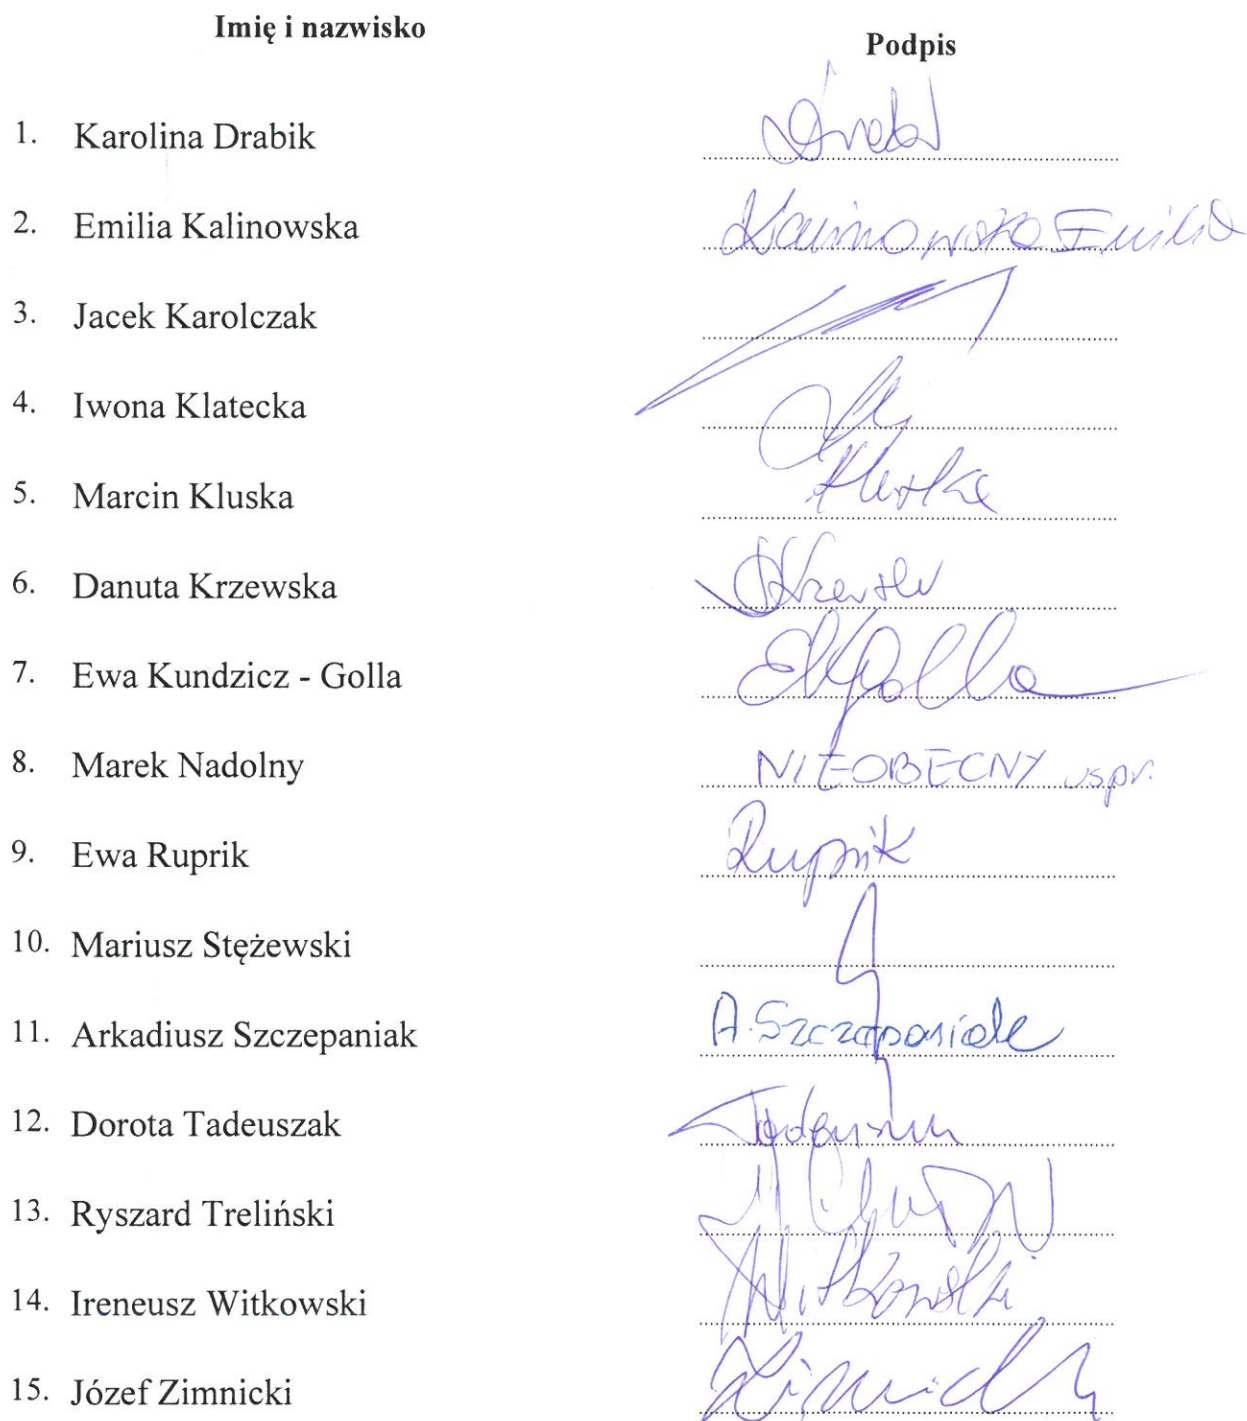 Imię i nazwisko Podpis
1. Karolina Drabik
2. Emilia Kalinowska Kalinowska Emilia
3. Jacek Karolczak
4. Iwona Klatecka
5. Marcin Kluska Kluska
6. Danuta Krzewska
7. Ewa Kundzicz - Golla EKGolla
8. Marek Nadolny NIEOBECNY uspr.
9. Ewa Ruprik Rupnik
10. Mariusz Stężewski
11. Arkadiusz Szczepaniak A. Szczepaniak
12. Dorota Tadeuszak
13. Ryszard Treliński
14. Ireneusz Witkowski Witkowski
15. Józef Zimnicki